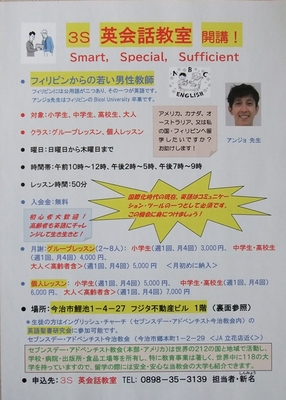 3S 英会話教室 開講！
Smart, Special, Sufficient
● フィリピンからの若い男性教師
フィリピンには公用語が二つあり、その一つが英語です。
アンジョ先生はフィリピンの Bicol University 卒業です。
A B C
ENGLISH
● 対象：小学生、中学生、高校生、大人
● クラス：グループレッスン、個人レッスン
● 曜日：日曜日から木曜日まで
● 時間帯：午前10時～12時、午後2時～5時、午後7時～9時
● レッスン時間：50分
● 入会金：無料
アメリカ、カナダ、オーストラリア、又は他の国・フィリピンへ留学したいですか？お助けします！
アンジョ 先生
国際化時代の現在、英語はコミュニケーション・ツールの一つとして必須です。この機会に身につけましょう！
初心者大歓迎！
高齢者も英語にチャレンジして生き生きと！
● 月謝：グループレッスン（2～8人）：小学生（週1回、月4回）3,000円、中学生・高校生（週1回、月4回）4,000円、
大人<高齢者含>（週1回、月4回）5,000円 <月初めに納入>
● 個人レッスン：小学生（週1回、月4回）5,000円、中学生・高校生（週1回、月4回）6,000円
大人<高齢者含>（週1回、月4回）7,000円
● 場所：今治市鯉池1－4－27 フジタ不動産ビル 1階 （裏面参照）
＊生徒の方はイングリッシュ・チャーチ（セブンスデー・アドベンチスト今治教会内）の英語聖書研究会に参加可能です。
セブンスデー・アドベンチスト今治教会（今治市郷本町1－2－29 <JA立花店近く>）
セブンスデー・アドベンチスト教会（本部・アメリカ）は世界の212の国と地域で活動し、学校・病院・出版所・食品工場等を所有し、特に教育事業は著しく、世界中に118の大学を持っていますので、留学の際には安全・安心な当教会の大学も紹介できます。
● 申込先：3S 英会話教室 TEL：0898－35－3139 担当者・新名